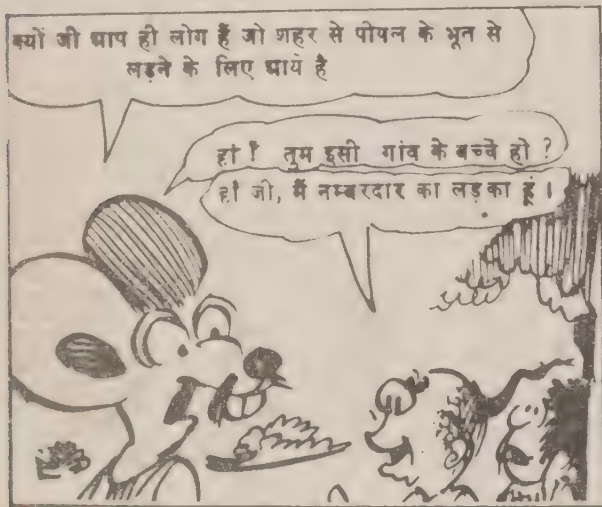 क्यों जी आप ही लोग हैं जो शहर से पीपल के भूत से
लड़ने के लिए आये है
हां ! तुम इसी गांव के बच्चे हो ?
हां जी, मैं नम्बरदार का लड़का हूं ।